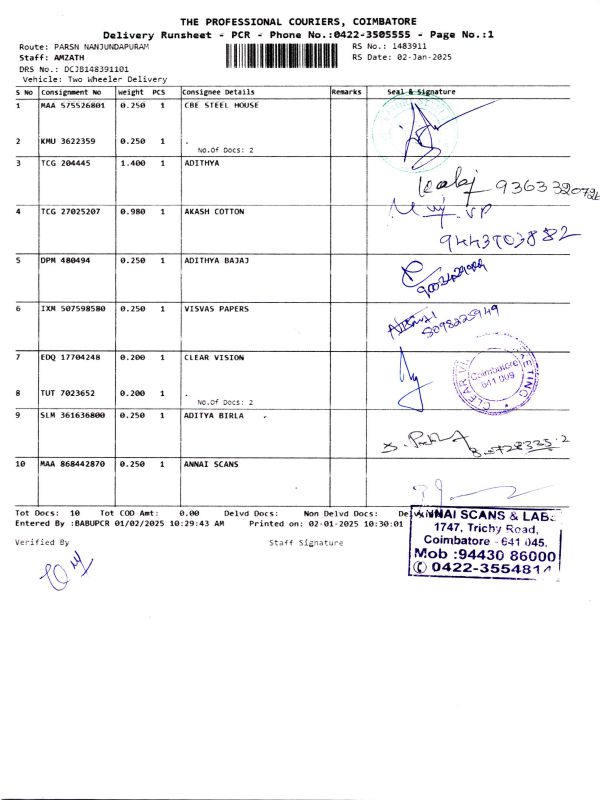 THE PROFESSIONAL COURIERS, COIMBATORE
Delivery Runsheet - PCR - Phone No.:0422-3505555 - Page No.:1
Route: PARSN NANJUNDAPURAM
RS No.: 1483911
Staff: AMZATH
RS Date: 02-Jan-2025
DRS No.: DCJB148391101
Vehicle: Two Wheeler Delivery
S No Consignment No Weight PCS Consignee Details Remarks Seal & Signature
1 MAA 575526801 0.250 1 CBE STEEL HOUSE
2 KMU 3622359 0.250 1 .
No.Of Docs: 2
3 TCG 204445 1.400 1 ADITHYA
4 TCG 27025207 0.980 1 AKASH COTTON
9443703882
5 DPM 480494 0.250 1 ADITHYA BAJAJ
6 IXM 507598580 0.250 1 VISVAS PAPERS
7 EDQ 17704248 0.200 1 CLEAR VISION
Coimbatore
641 009
8 TUT 7023652 0.200 1 .
No.Of Docs: 2
9 SLM 361636800 0.250 1 ADITYA BIRLA
10 MAA 868442870 0.250 1 ANNAI SCANS
Tot Docs: 10 Tot COD Amt: 0.00 Delvd Docs: Non Delvd Docs:
Entered By :BABUPCR 01/02/2025 10:29:43 AM Printed on: 02-01-2025 10:30:01
Verified By Staff Signature
ANNAI SCANS & LABS
1747, Trichy Road,
Coimbatore - 641 045.
Mob :94430 86000
0422-3554814